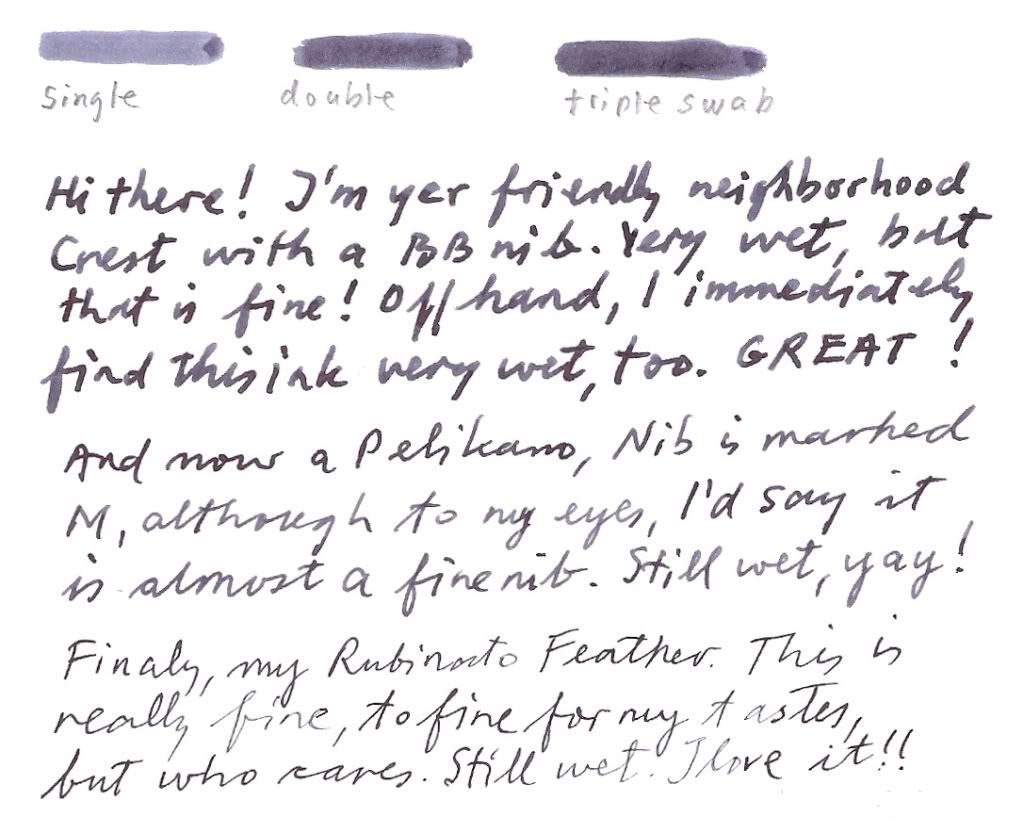 single double triple swab
Hi there! I'm yer friendly neighborhood
Crest with a BB nib. Very wet, but
that is fine! Off hand, I immediately
find this ink very wet, too. GREAT !
And now a Pelikano, Nib is marked
M, although to my eyes, I'd say it
is almost a fine nib. Still wet, yay!
Finaly, my Rubinato Feather. This is
really fine, to fine for my tastes,
but who cares. Still wet. I love it!!